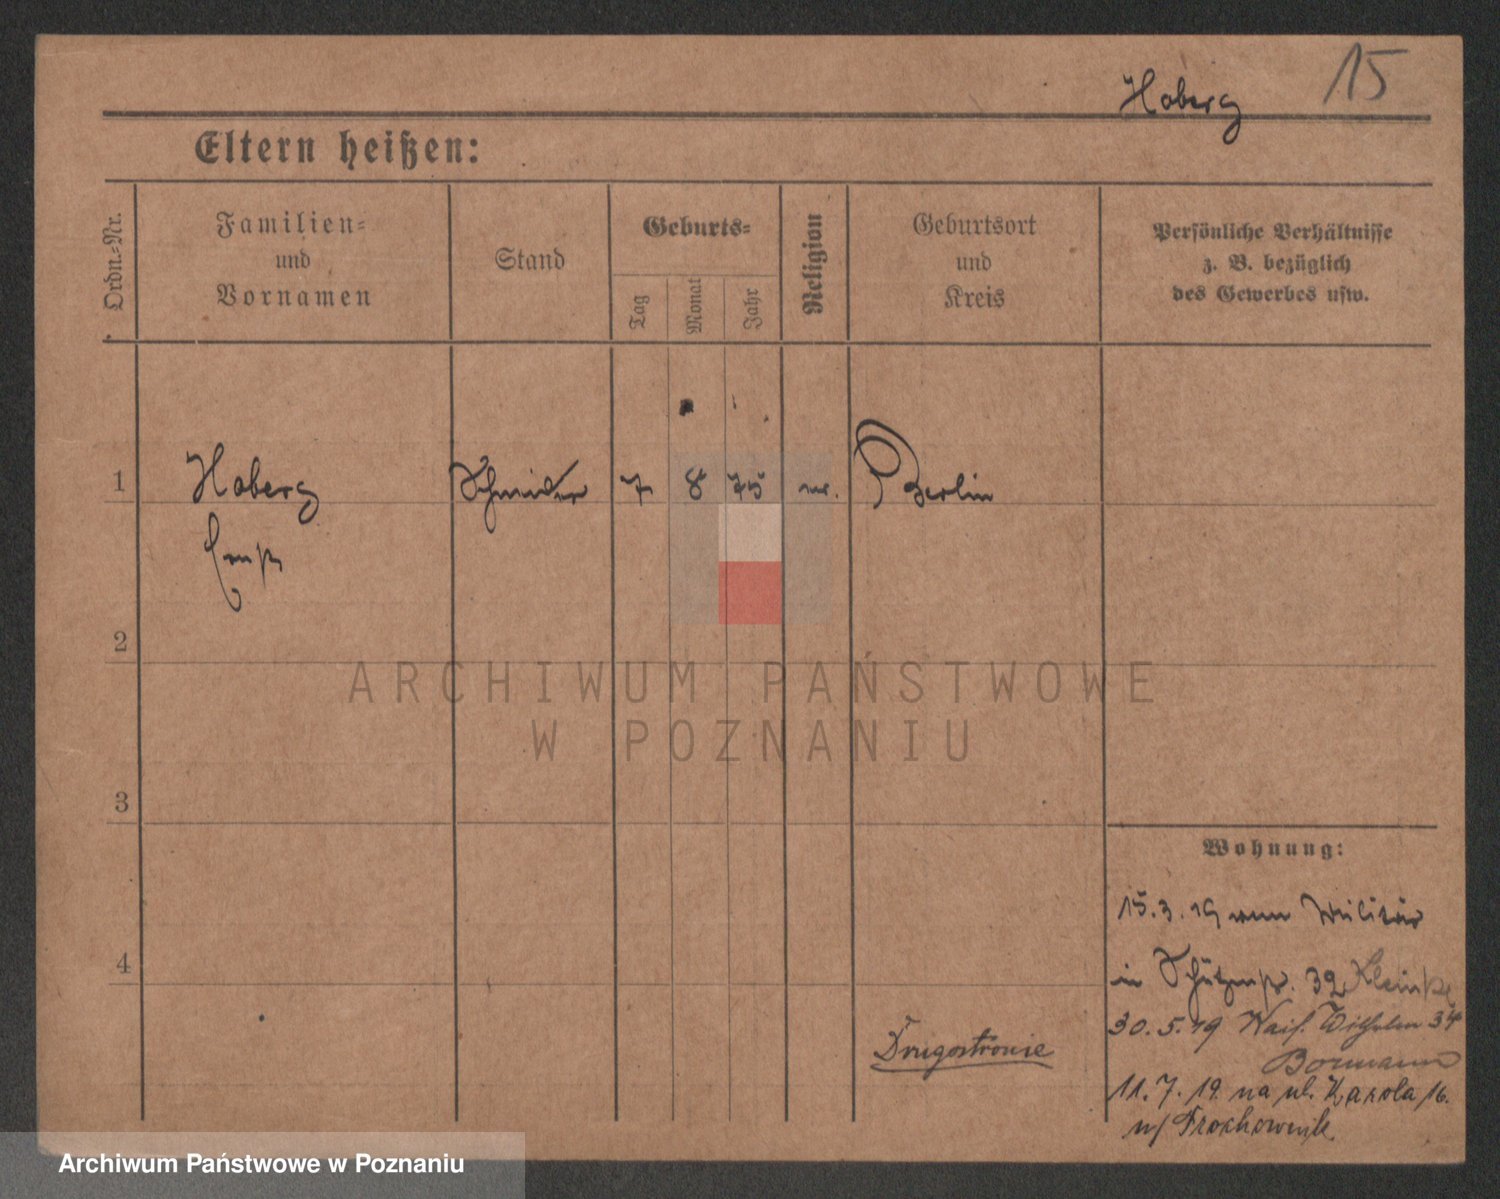 15
Hoberg
Eltern heißen:
Ordn.-Nr.
Familien-
und
Vornamen
Stand
Geburts-
Tag
Monat
Jahr
Religion
Geburtsort
und
Kreis
Persönliche Verhältnisse
z. B. bezüglich
des Gewerbes usw.
1
Hoberg
Schneider
7
8
75
Berlin
Ernst
2
ARCHIWUM PAŃSTWOWE
W POZNANIU
3
4
Wohnung:
15.3.19 vom Militär
in Schützenstr. 32
30.5.19 Kais. Wilhelm 34
Bormann
Drugostronie
11.7.19. na ul. Karola 16.
Archiwum Państwowe w Poznaniu